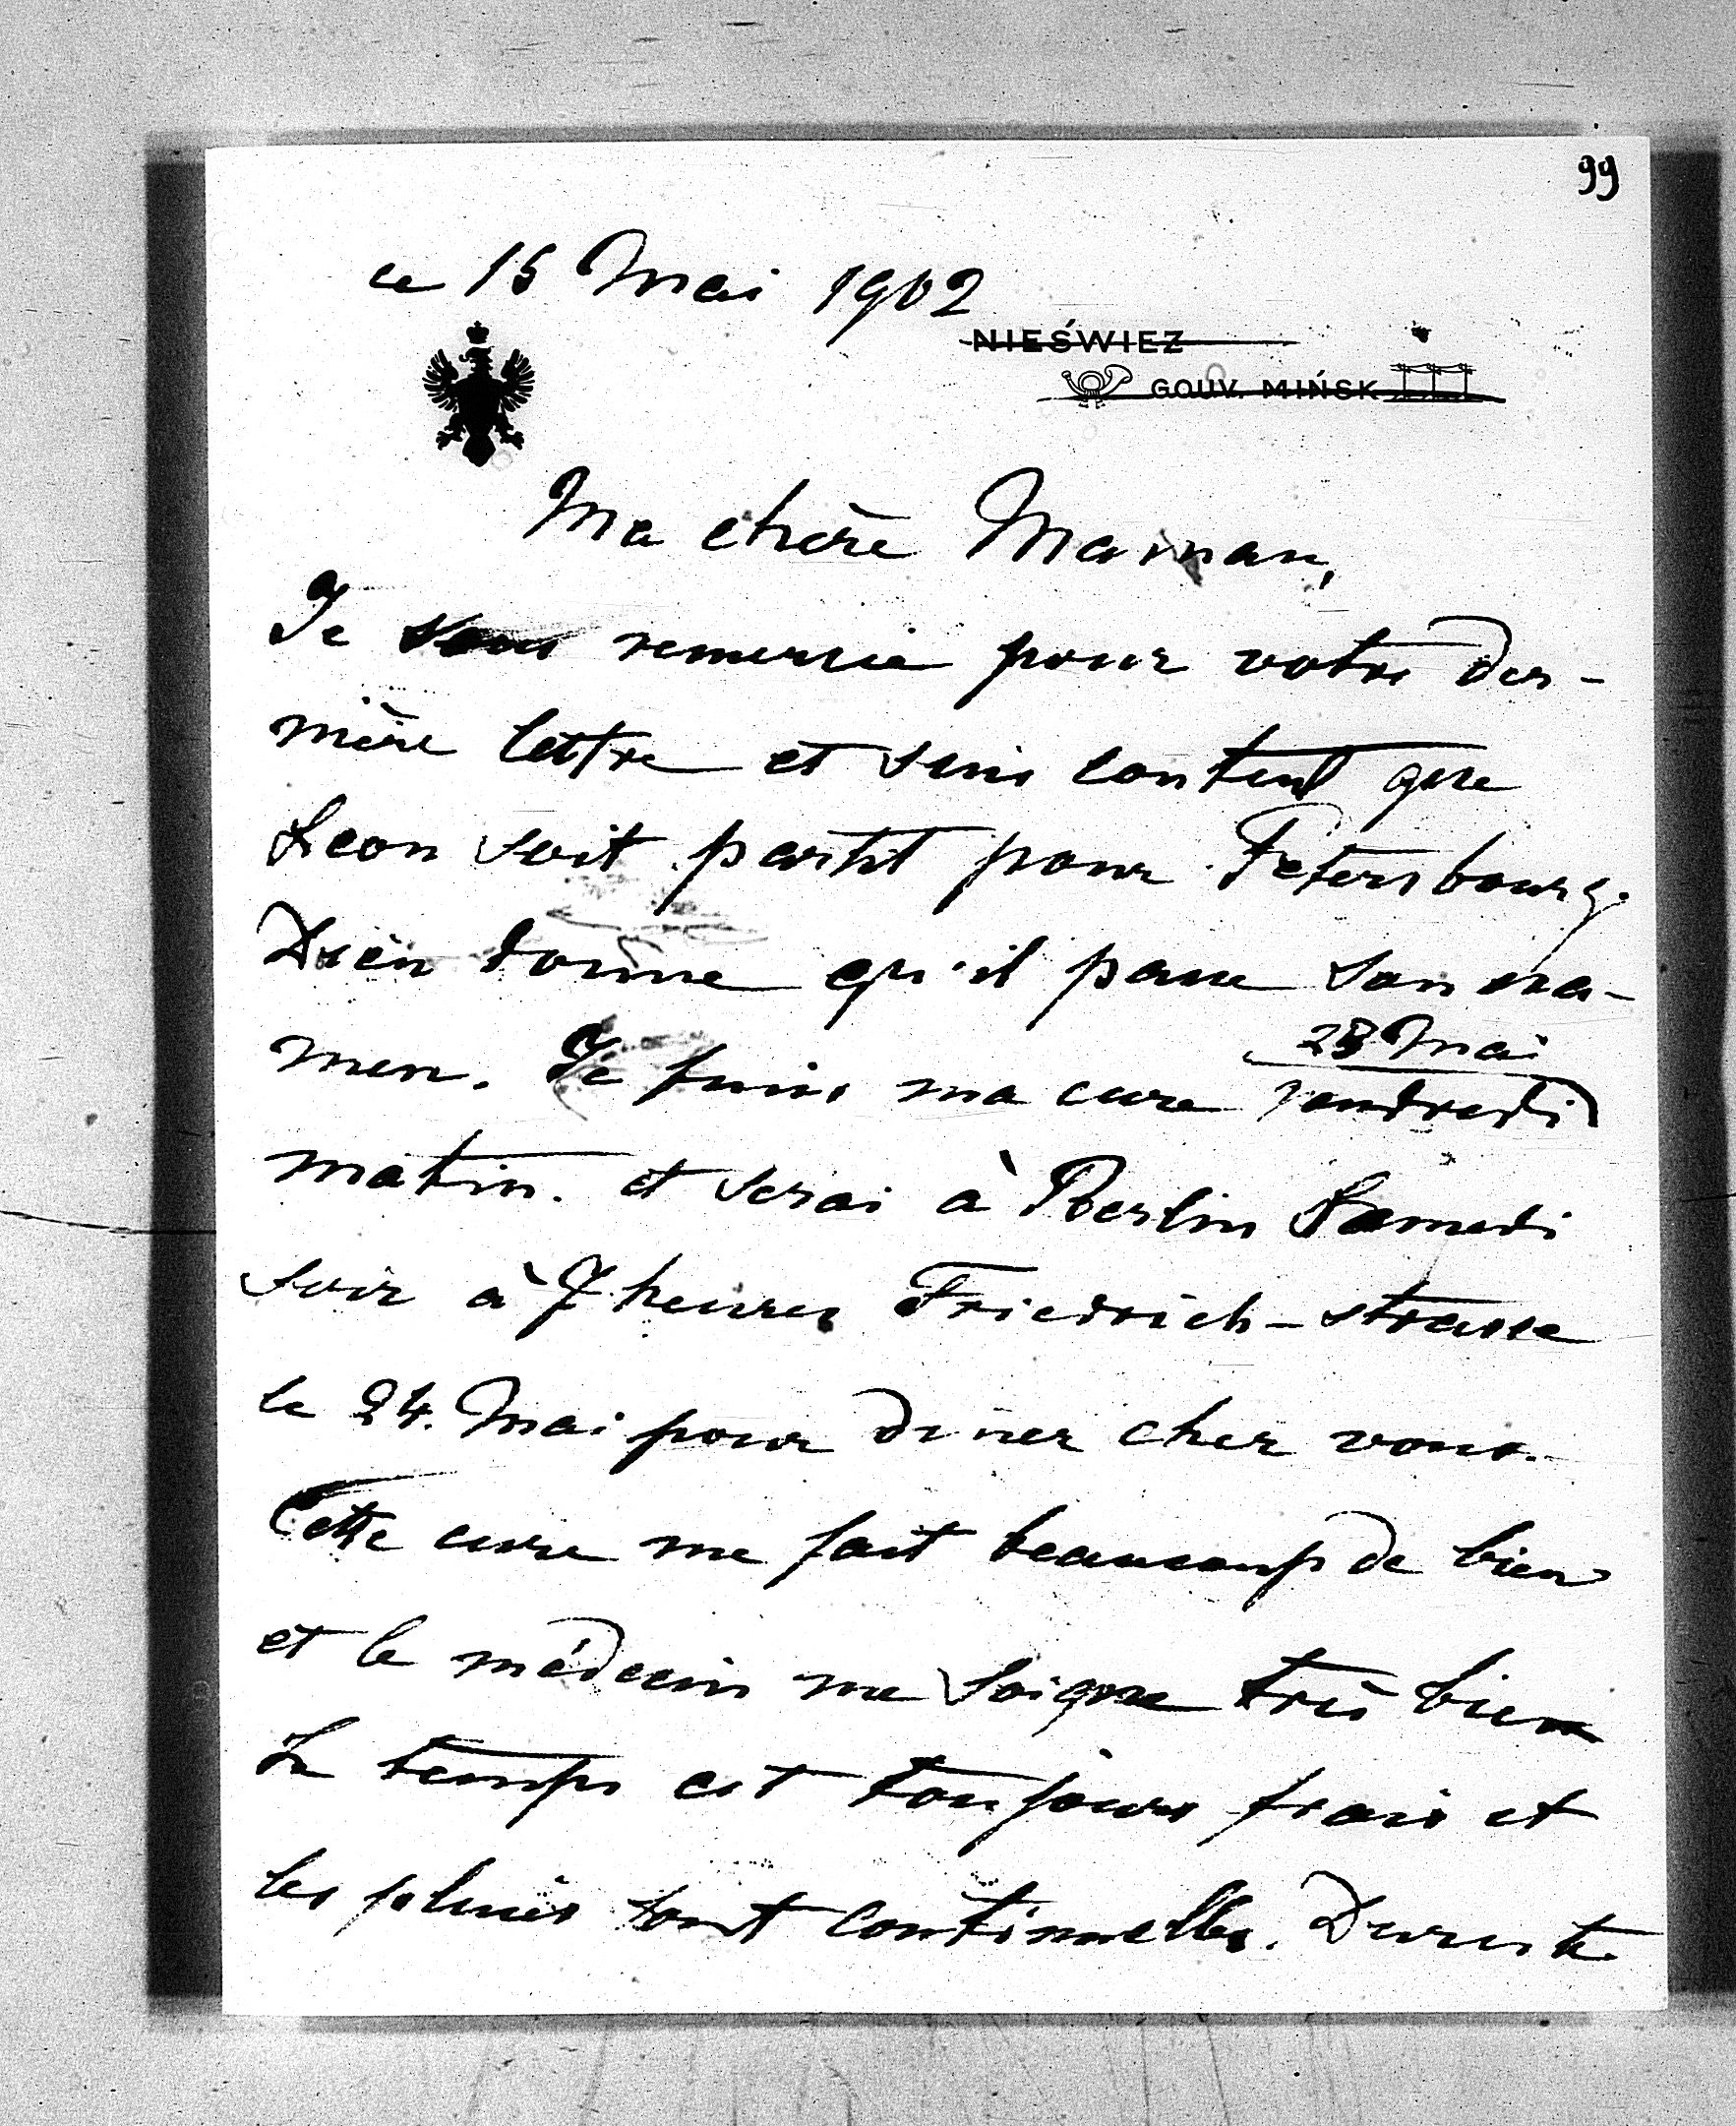 99
ce 15 Mai 1902
NIEŚWIEZ
GOUV. MIŃSK
Ma chère Maman,
Je vous remercie pour votre der-
nière lettre et suis content que
Leon soit partit pour Petersbourg.
Dieu donne qu'il passe son exa-
men. Je finis ma cure vendredi
23 Mai
matin. et serai à Berlin Samedi
soir à 7 heures Friedrich-strasse
le 24. Mai pour diner chez vous.
Cette cure me fait beaucoup de bien
et le médecin me soigne très bien
Le temps est toujours frais et
les pluies sont continuelles.